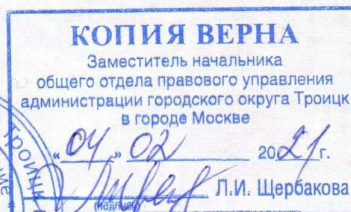 КОПИЯ ВЕРНА
Заместитель начальника
общего отдела правового управления
администрации городского округа Троицк
в городе Москве
"04" 02 2021 г.
Л.И. Щербакова
(подпись)